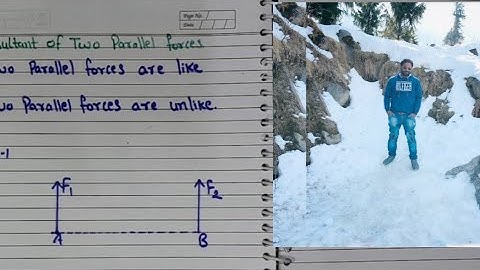 Page No.
Date
sultant of Two Parallel forces
wo Parallel forces are like
wo Parallel forces are unlike.
-1
F1
F2
A
B